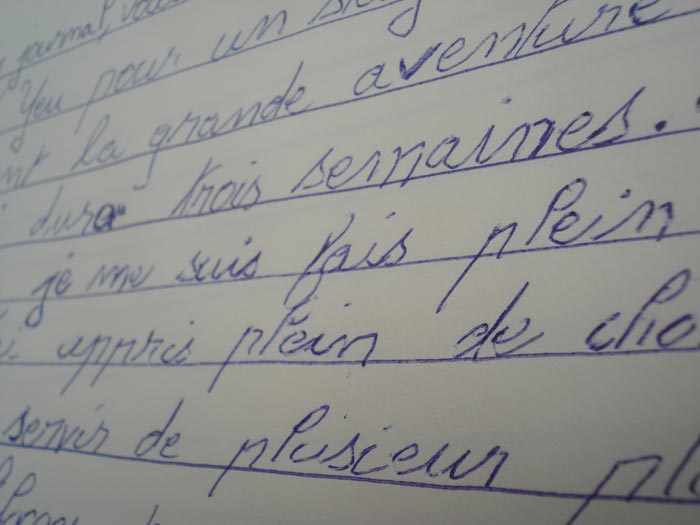 journal, vous
Yeu pour un
la grande aventure
dura trois semaines.
je me suis fais plein
appris plein de cho
servir de plusieur pl